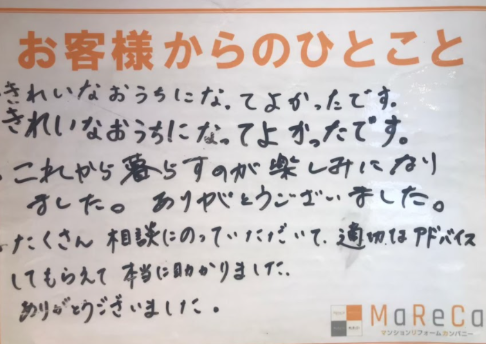 お客様からのひとこと
きれいなおうちになってよかったです。
きれいなおうちになってよかったです。
これから暮らすのが楽しみになり
ました。ありがとうございました。
たくさん相談にのっていただいて、適切なアドバイス
してもらえて本当に助かりました。
ありがとうございました。
MaReCa
マンションリフォームカンパニー